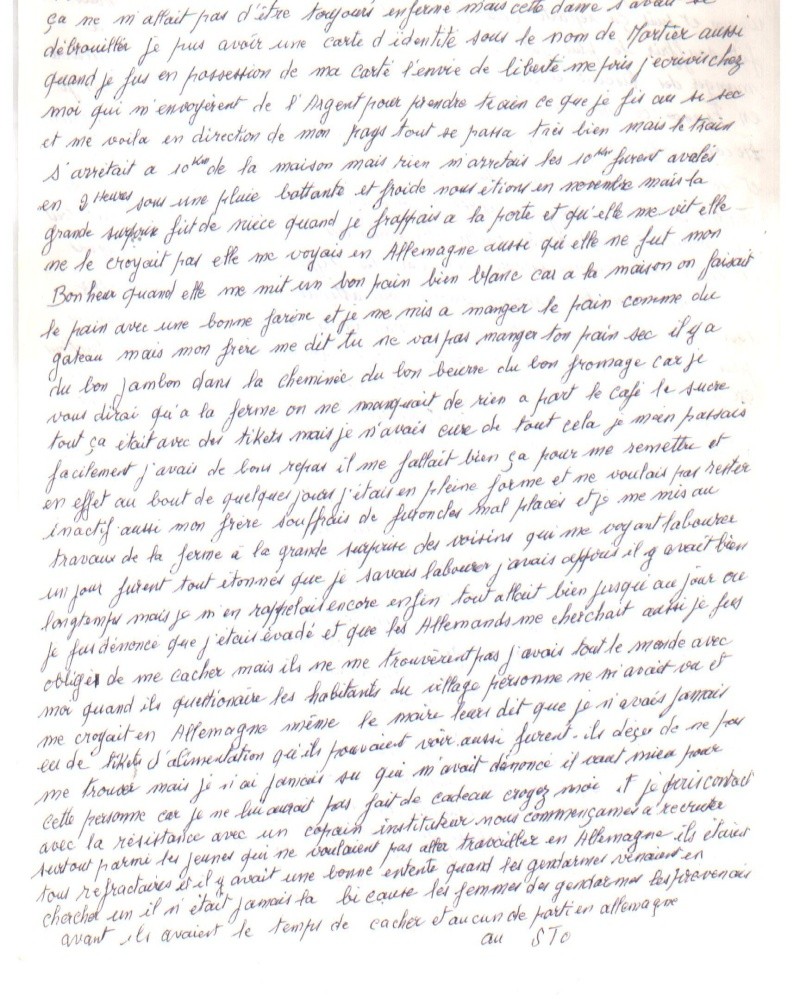 ça ne m'allait pas d'être toujours enfermé mais cette dame s'avait se
débrouiller je pus avoir une carte d'identité sous le nom de Mortier aussi
quand je fus en possession de ma carte l'envie de liberté me pris j'ecrivis chez
moi qui m'envoyèrent de l'Argent pour prendre train ce que je fis au si sec
et me voila en direction de mon pays tout se passa très bien mais le train
s'arrêtait a 10 km de la maison mais rien m'arretais les 10 km furent avalés
en 2 Heures sous une pluie battante et froide nous étions en novembre mais la
grande surprise fut de nièce quand je frappais a la porte et qu'elle me vit elle
me le croyait pas elle me voyais en Allemagne aussi qu'elle ne fut mon
Bonheur quand elle me mit un bon pain bien blanc car a la maison on faisait
le pain avec une bonne farine et je me mis a manger le pain comme du
gateau mais mon frère me dit tu ne vas pas manger ton pain sec il y a
du bon jambon dans la cheminée du bon beurre du bon fromage car je
vous dirai qu'a la ferme on ne manquait de rien a part le café le sucre
tout ça était avec des tikets mais je n'avais cure de tout cela je m'en passais
facilement j'avais de bons repas il me fallait bien ça pour me remettre et
en effet au bout de quelques jours j'étais en pleine forme et ne voulais pas rester
inactif aussi mon frère souffrais de furoncles mal placés et je me mis au
travaux de la ferme à la grande surprise des voisins qui me voyant labourer
un jour furent tout étonnés que je savais labourer j'avais appris il y avait bien
longtemps mais je m'en rappelais encore enfin tout allait bien jusqu'au jour ou
je fus dénoncé que j'étais évadé et que les Allemands me cherchait aussi je fus
obligé de me cacher mais ils ne me trouvèrent pas j'avais tout le monde avec
moi quand ils questionaire les habitants du village personne ne m'avait vu et
me croyait en Allemagne même le maire leurs dit que je n'avais jamais
eu de tikets d'alimentation qu'ils pouvaient voir aussi furent-ils déçu de ne pas
me trouver mais je n'ai jamais su qui m'avait dénoncé il vaut mieu pour
cette personne car je ne lui aurait pas fait de cadeau croyez moi et je pris contact
avec la résistance avec un copain instituteur nous commençames a recruter
surtout parmi les jeunes qui ne voulaient pas aller travailler en Allemagne ils étaient
tous refractaires et il y avait une bonne entente quand les gendarmes venaient en
chercher un il n'était jamais la bi cause les femmes des gendarmes les prevenais
avant ils avaient le temps de cacher et aucun de parti en allemagne
au STO